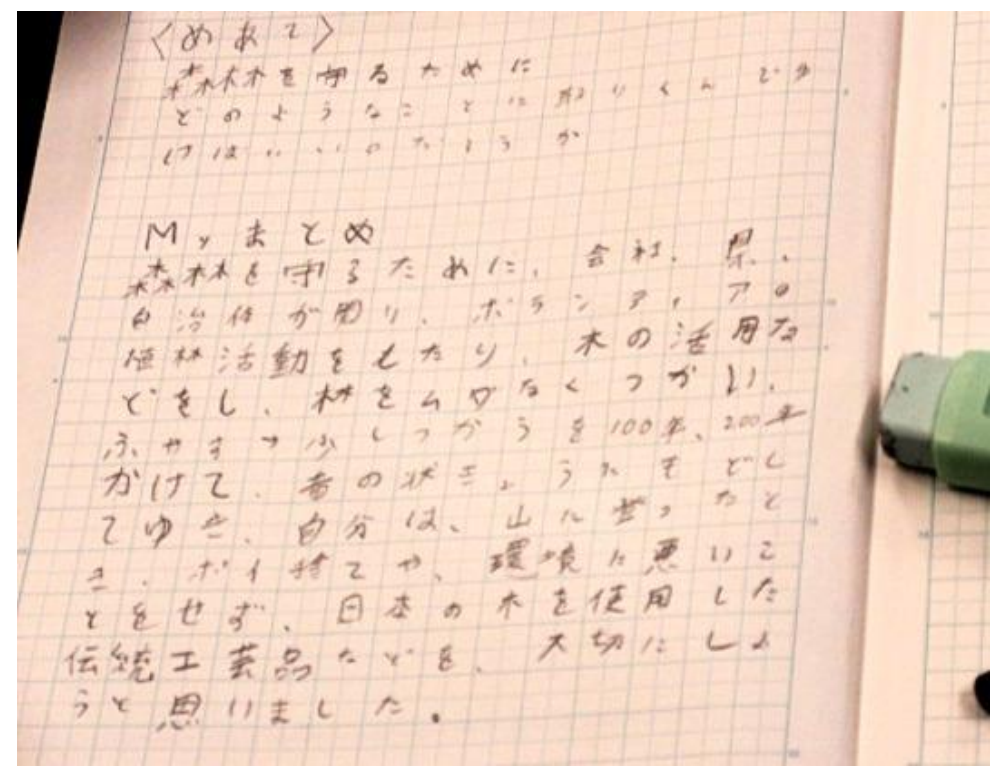 〈めあて〉
森林を守るために
どのようなことに取りくんでい
けばいいのだろうか
Myまとめ
森林を守るために、会社、県、
自治体が周り、ボランティアの
植林活動をしたり、木の活用な
どをし、材をムダなくつかい、
ふやす→少しつかうを100年、200年
かけて、昔の状きょうにもどし
てゆき、自分は、山に登ったと
き、ポイ捨てや、環境に悪いこ
とをせず、日本の木を使用した
伝統工芸品などを、大切にしよ
うと思いました。